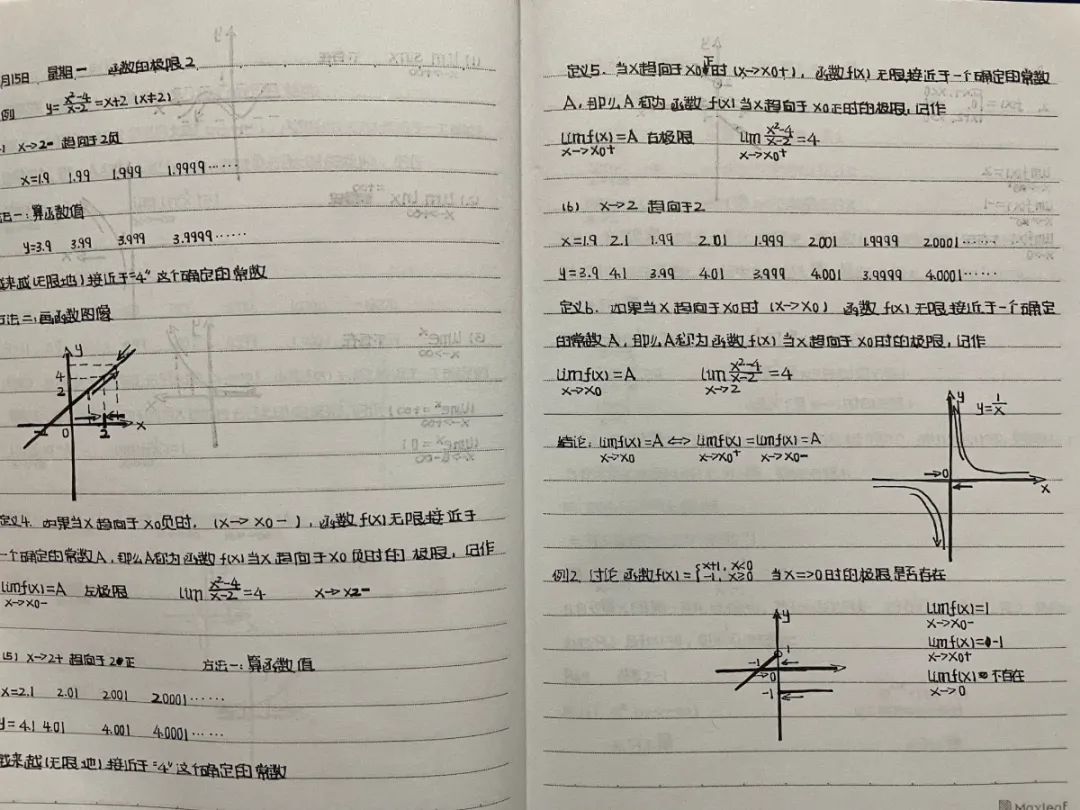 月15日 星期一 函数的极限2
例 y=x²-4/x-2=x+2 (x≠2)
x→2- 趋向于2负
x=1.9 1.99 1.999 1.9999……
法一:算函数值
y=3.9 3.99 3.999 3.9999……
越来越(无限地)接近于"4"这个确定的常数
方法二:画函数图像
y
4
2
0 2 x
定义4. 如果当x趋向于x0负时, (x→x0-), 函数f(x)无限接近于
一个确定的常数A, 那么A称为函数f(x)当x趋向于x0负时的极限, 记作
limf(x)=A 左极限 lim x²-4/x-2=4 x→x2-
x→x0-
(5) x→2+ 趋向于2正 方法一:算函数值
x=2.1 2.01 2.001 2.0001……
y=4.1 4.01 4.001 4.0001……
越来越(无限地)接近于"4"这个确定的常数
定义5. 当x趋向于x0正时(x→x0+), 函数f(x)无限接近于一个确定的常数
A, 那么A称为函数f(x)当x趋向于x0正时的极限, 记作
limf(x)=A 右极限 lim x²-4/x-2=4
x→x0+ x→x0+
(6) x→2 趋向于2
x=1.9 2.1 1.99 2.01 1.999 2.001 1.9999 2.0001……
y=3.9 4.1 3.99 4.01 3.999 4.001 3.9999 4.0001……
定义6. 如果当x趋向于x0时(x→x0) 函数f(x)无限接近于一个确定
的常数A, 那么A称为函数f(x)当x趋向于x0时的极限, 记作
limf(x)=A lim x²-4/x-2=4
x→x0 x→2
y y=1/x
结论: limf(x)=A⇔limf(x)=limf(x)=A
x→x0 x→x0+ x→x0-
→0
x
例2. 讨论函数f(x)={x+1, x<0 -1, x≥0 当x=>0时的极限是否存在
y
1
→0
-1
limf(x)=1
x→x0-
limf(x)=-1
x→x0+
limf(x)=不存在
x→0
Maxleaf